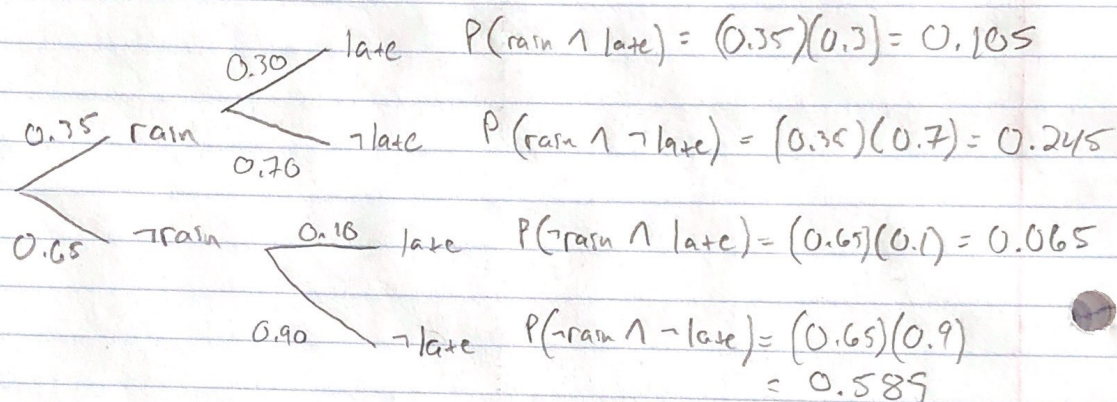 0.30 late P(rain ∧ late) = (0.35)(0.3) = 0.105
0.35 rain
0.70 ¬late P(rain ∧ ¬late) = (0.35)(0.7) = 0.245
0.65 ¬rain 0.10 late P(¬rain ∧ late) = (0.65)(0.1) = 0.065
0.90 ¬late P(¬rain ∧ ¬late) = (0.65)(0.9)
= 0.585